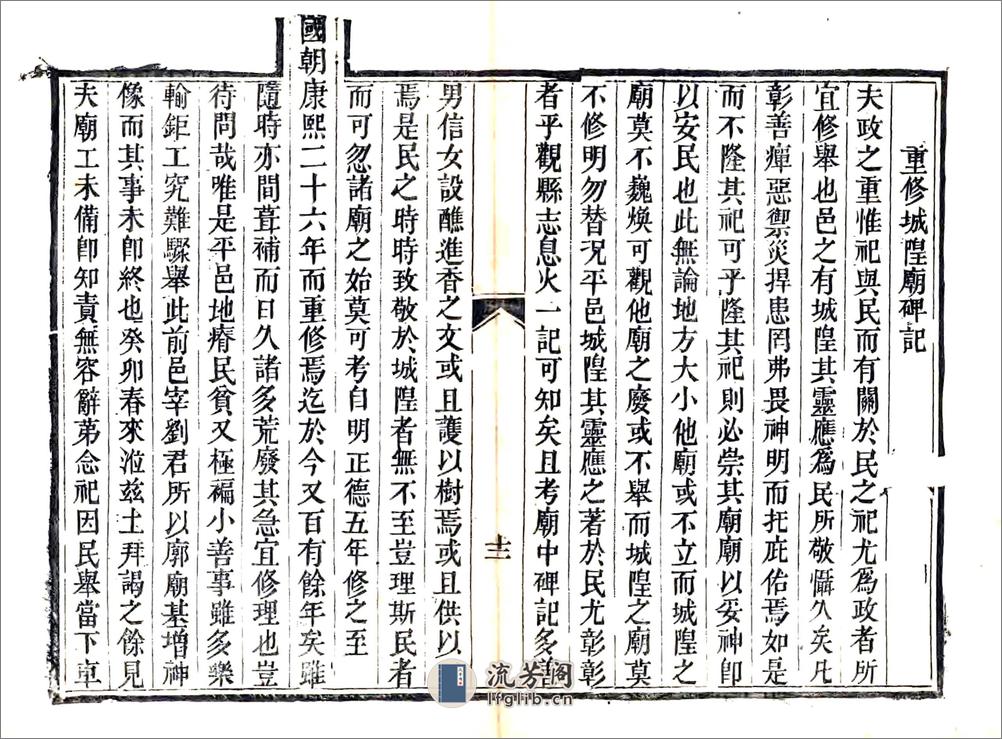 重修城隍廟碑記
夫政之重惟祀與民而有關於民之祀尤為政者所
宜修舉也邑之有城隍其靈應為民所敬懾久矣凡
彰善癉惡禦災捍患罔弗畏神明而托庇佑焉如是
而不隆其祀可乎隆其祀則必崇其廟廟以妥神卽
以安民也此無論地方大小他廟或不立而城隍之
廟莫不巍煥可觀他廟之廢或不舉而城隍之廟莫
不修明勿替况平邑城隍其靈應之著於民尤彰彰
者乎觀縣志息火一記可知矣且考廟中碑記多善
十二
男信女設醮進香之文或且護以樹焉或且供以
焉是民之時時致敬於城隍者無不至豈理斯民者
而可忽諸廟之始莫可考自明正德五年修之至
國朝康熙二十六年而重修焉迄於今又百有餘年矣雖
隨時亦間葺補而日久諸多荒廢其急宜修理也豈
待問哉唯是平邑地瘠民貧又極褊小善事雖多樂
輸鉅工究難驟舉此前邑宰劉君所以廓廟基增神
像而其事未卽終也癸卯春來涖兹土拜謁之餘見
夫廟工未備卽知責無容辭第念祀因民舉當下車
流芳閣
lfglib.cn